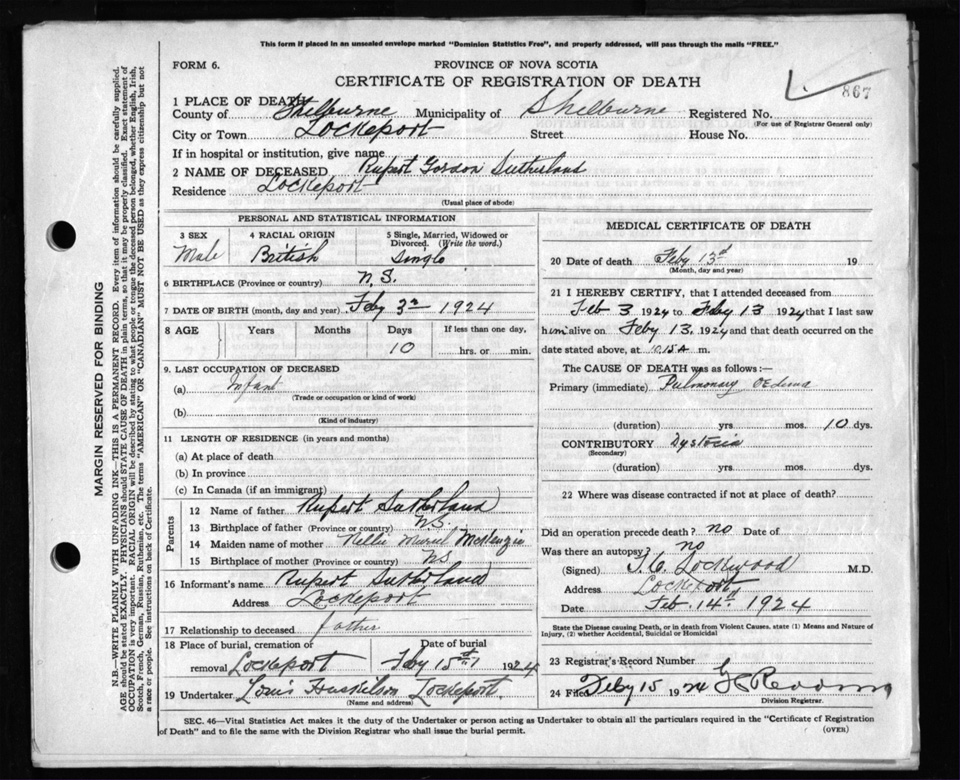 This form if placed in an unsealed envelope marked "Dominion Statistics Free", and properly addressed, will pass through the mails "FREE."
FORM 6.
PROVINCE OF NOVA SCOTIA
CERTIFICATE OF REGISTRATION OF DEATH
867
1 PLACE OF DEATH
County of Shelburne Municipality of Shelburne Registered No.
(For use of Registrar General only)
City or Town Lockeport Street House No.
If in hospital or institution, give name
2 NAME OF DECEASED Rupert Gordon Sutherland
Residence Lockeport
(Usual place of abode)
PERSONAL AND STATISTICAL INFORMATION
3 SEX 4 RACIAL ORIGIN 5 Single, Married, Widowed or Divorced. (Write the word.)
Male British Single
6 BIRTHPLACE (Province or country) N.S.
7 DATE OF BIRTH (month, day and year) Feby 3rd 1924
8 AGE Years Months Days If less than one day,
10 hrs. or min.
9. LAST OCCUPATION OF DECEASED
(a) Infant
(Trade or occupation or kind of work)
(b)
(Kind of industry)
11 LENGTH OF RESIDENCE (in years and months)
(a) At place of death
(b) In province
(c) In Canada (if an immigrant)
Parents
12 Name of father Rupert Sutherland
13 Birthplace of father (Province or country) NS.
14 Maiden name of mother Nellie Muriel McKenzie
15 Birthplace of mother (Province or country) NS
16 Informant's name Rupert Sutherland
Address Lockeport
17 Relationship to deceased father
18 Place of burial, cremation or removal Lockeport Date of burial Feby 15th 1924
19 Undertaker Louis Huskilson Lockeport.
(Name and address)
MEDICAL CERTIFICATE OF DEATH
20 Date of death Feby 13th 19
(Month, day and year)
21 I HEREBY CERTIFY, that I attended deceased from
Feb 3 1924 to Feby 13 1924 that I last saw
him alive on Feby 13, 1924 and that death occurred on the
date stated above, at m.
The CAUSE OF DEATH was as follows:—
Primary (immediate) Pulmonary Oedema
(duration) yrs. mos. 10 dys.
CONTRIBUTORY Dystocia
(Secondary)
(duration) yrs. mos. dys.
22 Where was disease contracted if not at place of death?
Did an operation precede death? no Date of
Was there an autopsy? no
(Signed) Lockwood M.D.
Address Lockeport
Date Feb. 14th 1924
State the Disease causing Death, or in death from Violent Causes, state (1) Means and Nature of Injury, (2) whether Accidental, Suicidal or Homicidal
23 Registrar's Record Number
24 Filed Feby 15 1924
Division Registrar.
SEC. 46—Vital Statistics Act makes it the duty of the Undertaker or person acting as Undertaker to obtain all the particulars required in the "Certificate of Registration
of Death" and to file the same with the Division Registrar who shall issue the burial permit.
(OVER)
MARGIN RESERVED FOR BINDING
N.B.—WRITE PLAINLY WITH UNFADING INK—THIS IS A PERMANENT RECORD. Every item of information should be carefully supplied.
AGE should be stated EXACTLY. PHYSICIANS should STATE CAUSE OF DEATH in plain terms, so that it may be properly classified. Exact statement of
OCCUPATION is very important. RACIAL ORIGIN will be described by stating to what people or tongue the deceased person belonged, whether English, Irish,
Scotch, French, German, Russian, Ruthenian, etc. The terms "AMERICAN" OR "CANADIAN" MUST NOT BE USED as they express citizenship but not
a race or people. See instructions on back of Certificate.